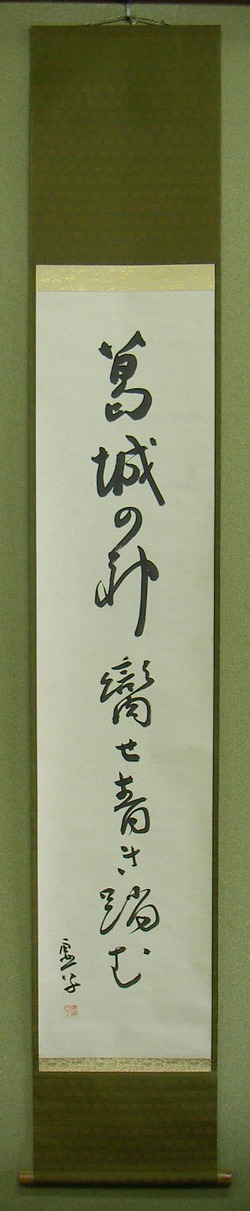 葛城の神饗せ青き踏む
虚子